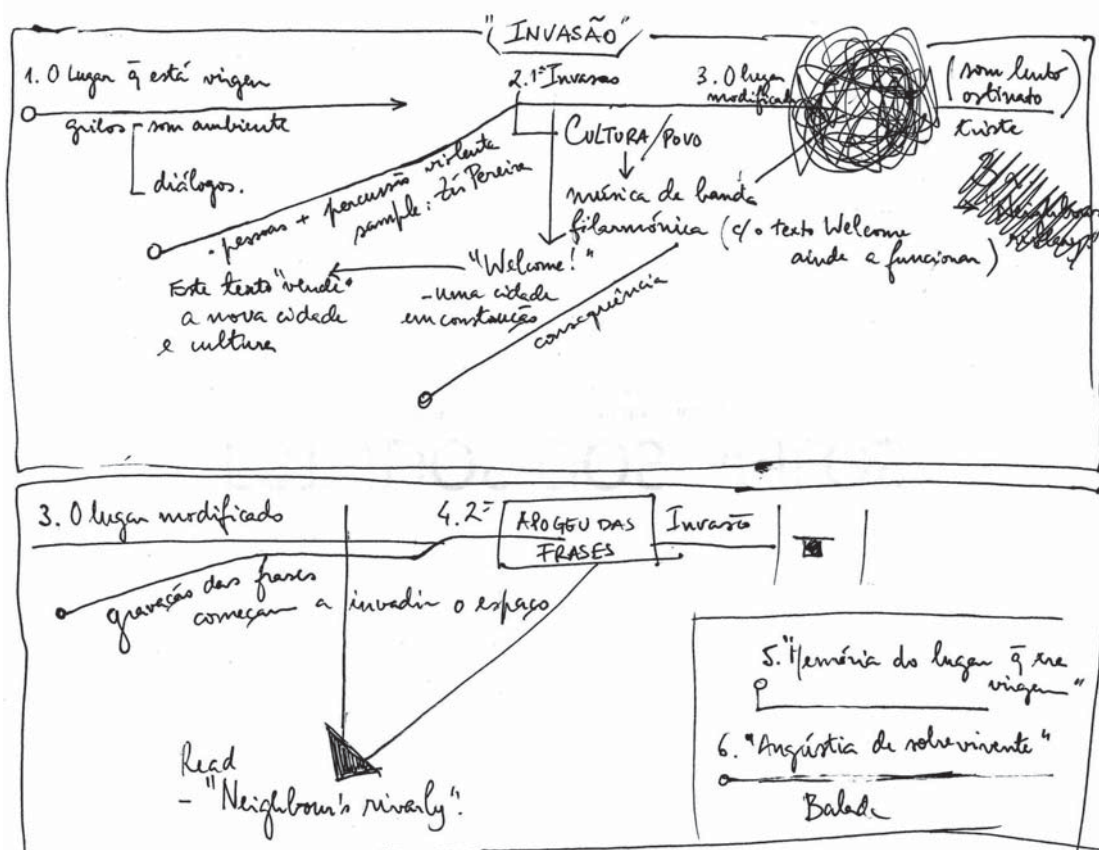 "INVASÃO"
1. O lugar q̄ está virgem
grilos - som ambiente
diálogos.
2. 1ª Invasão
- pessoas + percussão violenta
sample: Zés Pereira
CULTURA / POVO
música de banda
filarmónica (c/o texto Welcome
ainda a funcionar)
"Welcome!"
- uma cidade
em construção
Este texto "vende"
a nova cidade
e cultura
consequência
3. O lugar
modificado
(som lento
ostinato)
triste
3. O lugar modificado
gravação das frases
começam a invadir o espaço
4. 2ª
APOGEU DAS
FRASES
Invasão
Read
- "Neighbour's rivarly".
5. "Memória do lugar q̄ era
virgem"
6. "Angústia de sobrevivente"
Balada